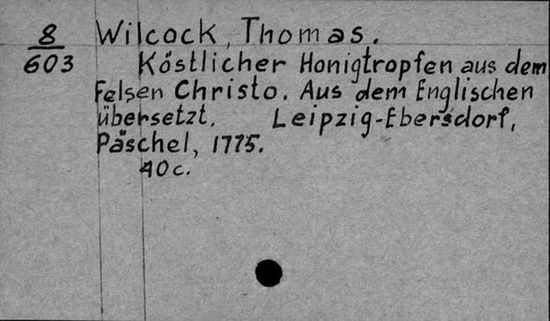 8 Wilcock, Thomas.
603 Köstlicher Honigtropfen aus dem
Felsen Christo. Aus dem Englischen
übersetzt. Leipzig-Ebersdorf,
Päschel, 1775.
40 c.